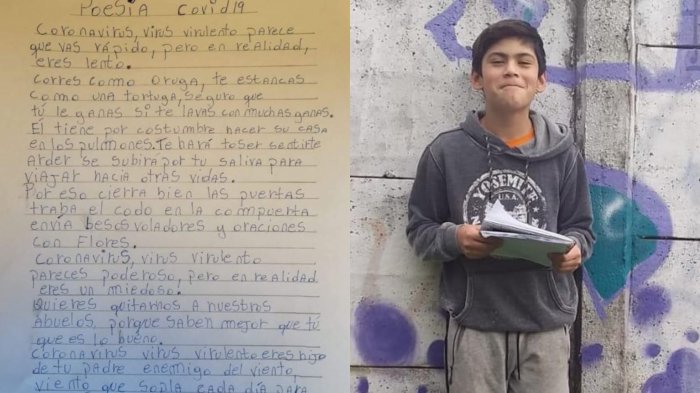 POESÍA Covid19
Coronavirus, virus virulento parece
que vas rápido, pero en realidad,
eres lento.
Corres como oruga, te estancas
como una tortuga, seguro que
tú le ganas si te lavas con muchas ganas.
El tiene por costumbre hacer su casa
en los pulmones. Te hará toser sentirte
Arder se subirá por tu saliva para
viajar hacia otras vidas.
Por eso cierra bien las puertas
traba el codo en la compuerta
envía besos voladores y oraciones
con Flores.
Coronavirus, virus virulento
pareces poderoso, pero en realidad
eres un miedoso.
Quieres quitarnos a nuestros
Abuelos porque saben mejor que tú
que es lo bueno.
Coronavirus virus virulento eres hijo
de tu padre enemigo del viento,
viento que sopla cada día para
YOSEMITE
U.S.A.